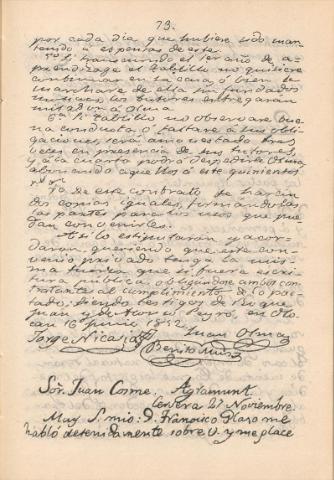 73.
por cada dia que hubiere sido man-
tenido á espensas de este.
5º Si transcurrido el 1er año de a-
prendizage el Cablillo no quisiere
continuar en la casa, ó bien se
marchare de ella sin fundados
motivos, los tutores entregarán
á Olma
6ª Si Cablillo no observare bue-
na conducta, ó faltare á sus obli-
gaciones, será amonestado tres
veces en presencia de sus tutores,
y á la cuarta podrá despedirle Olma
abonando aquellos á este quinientos
rs. vn.
7ª de este contrato se harán
dos copias iguales, firmándolas
las partes para los usos que pue-
dan convenirles.
Asi lo estipularon y acor-
daron, queriendo que este con-
venio privado tenga la mis-
ma fuerza que si fuera escri-
tura pública, obligándose ambos con-
tratante al cumplimiento de lo pac-
tado. Siendo testigos de
Juan y de Marco Peyró, en Olo-
cau 16 Junio 1852. Juan Olma
Jorge Nicasio
Benito Muñoz
Sor. Juan Cosme. Agramunt.
Cervera 27 Noviembre.
Muy S. mio: D. Francisco Glaso me
habló detenidamente sobre V. y me place